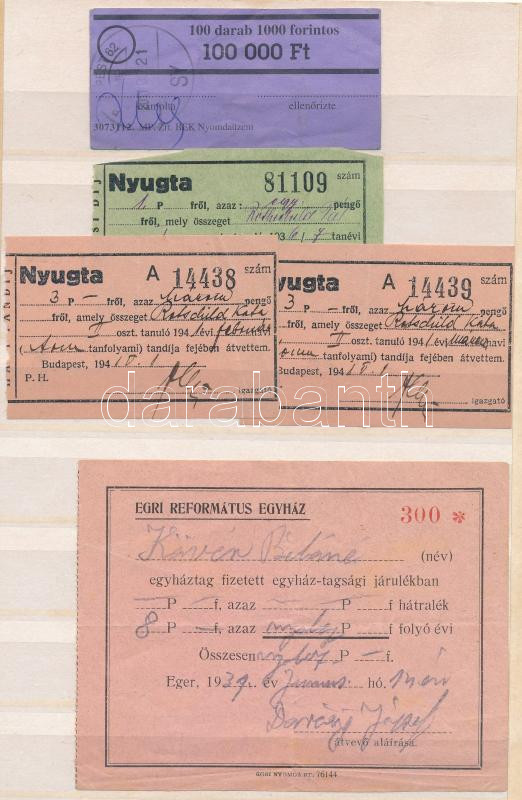 100 darab 1000 forintos
100 000 Ft
számolta ellenőrizte
3073112. MP. Zrt. BEK Nyomdaüzem
Nyugta 81109 szám
1. P ről, azaz: egy pengő
fről, mely összeget
193 6/7 tanévi
Nyugta A 14438 szám
3 P — fről, azaz három pengő
fről, amely összeget Rotschild Kata
II oszt. tanuló 1941 évi február
tanfolyami) tandija fejében átvettem.
Budapest, 194
P. H.
igazgató
Nyugta A 14439 szám
3 P — fről, azaz három pengő
fről, amely összeget Rotschild Kata
II oszt. tanuló 1941
tanfolyami) tandija fejében átvettem.
Budapest, 194
igazgató
darabanth
EGRI REFORMÁTUS EGYHÁZ 300 *
(név)
egyháztag fizetett egyház-tagsági járulékban
P f, azaz P f hátralék
8 P — f, azaz nyolc P f folyó évi
Összesen nyolc P — f.
Eger, 1939 év hó
József
átvevő aláírása.
EGRI NYOMDA RT. 76144